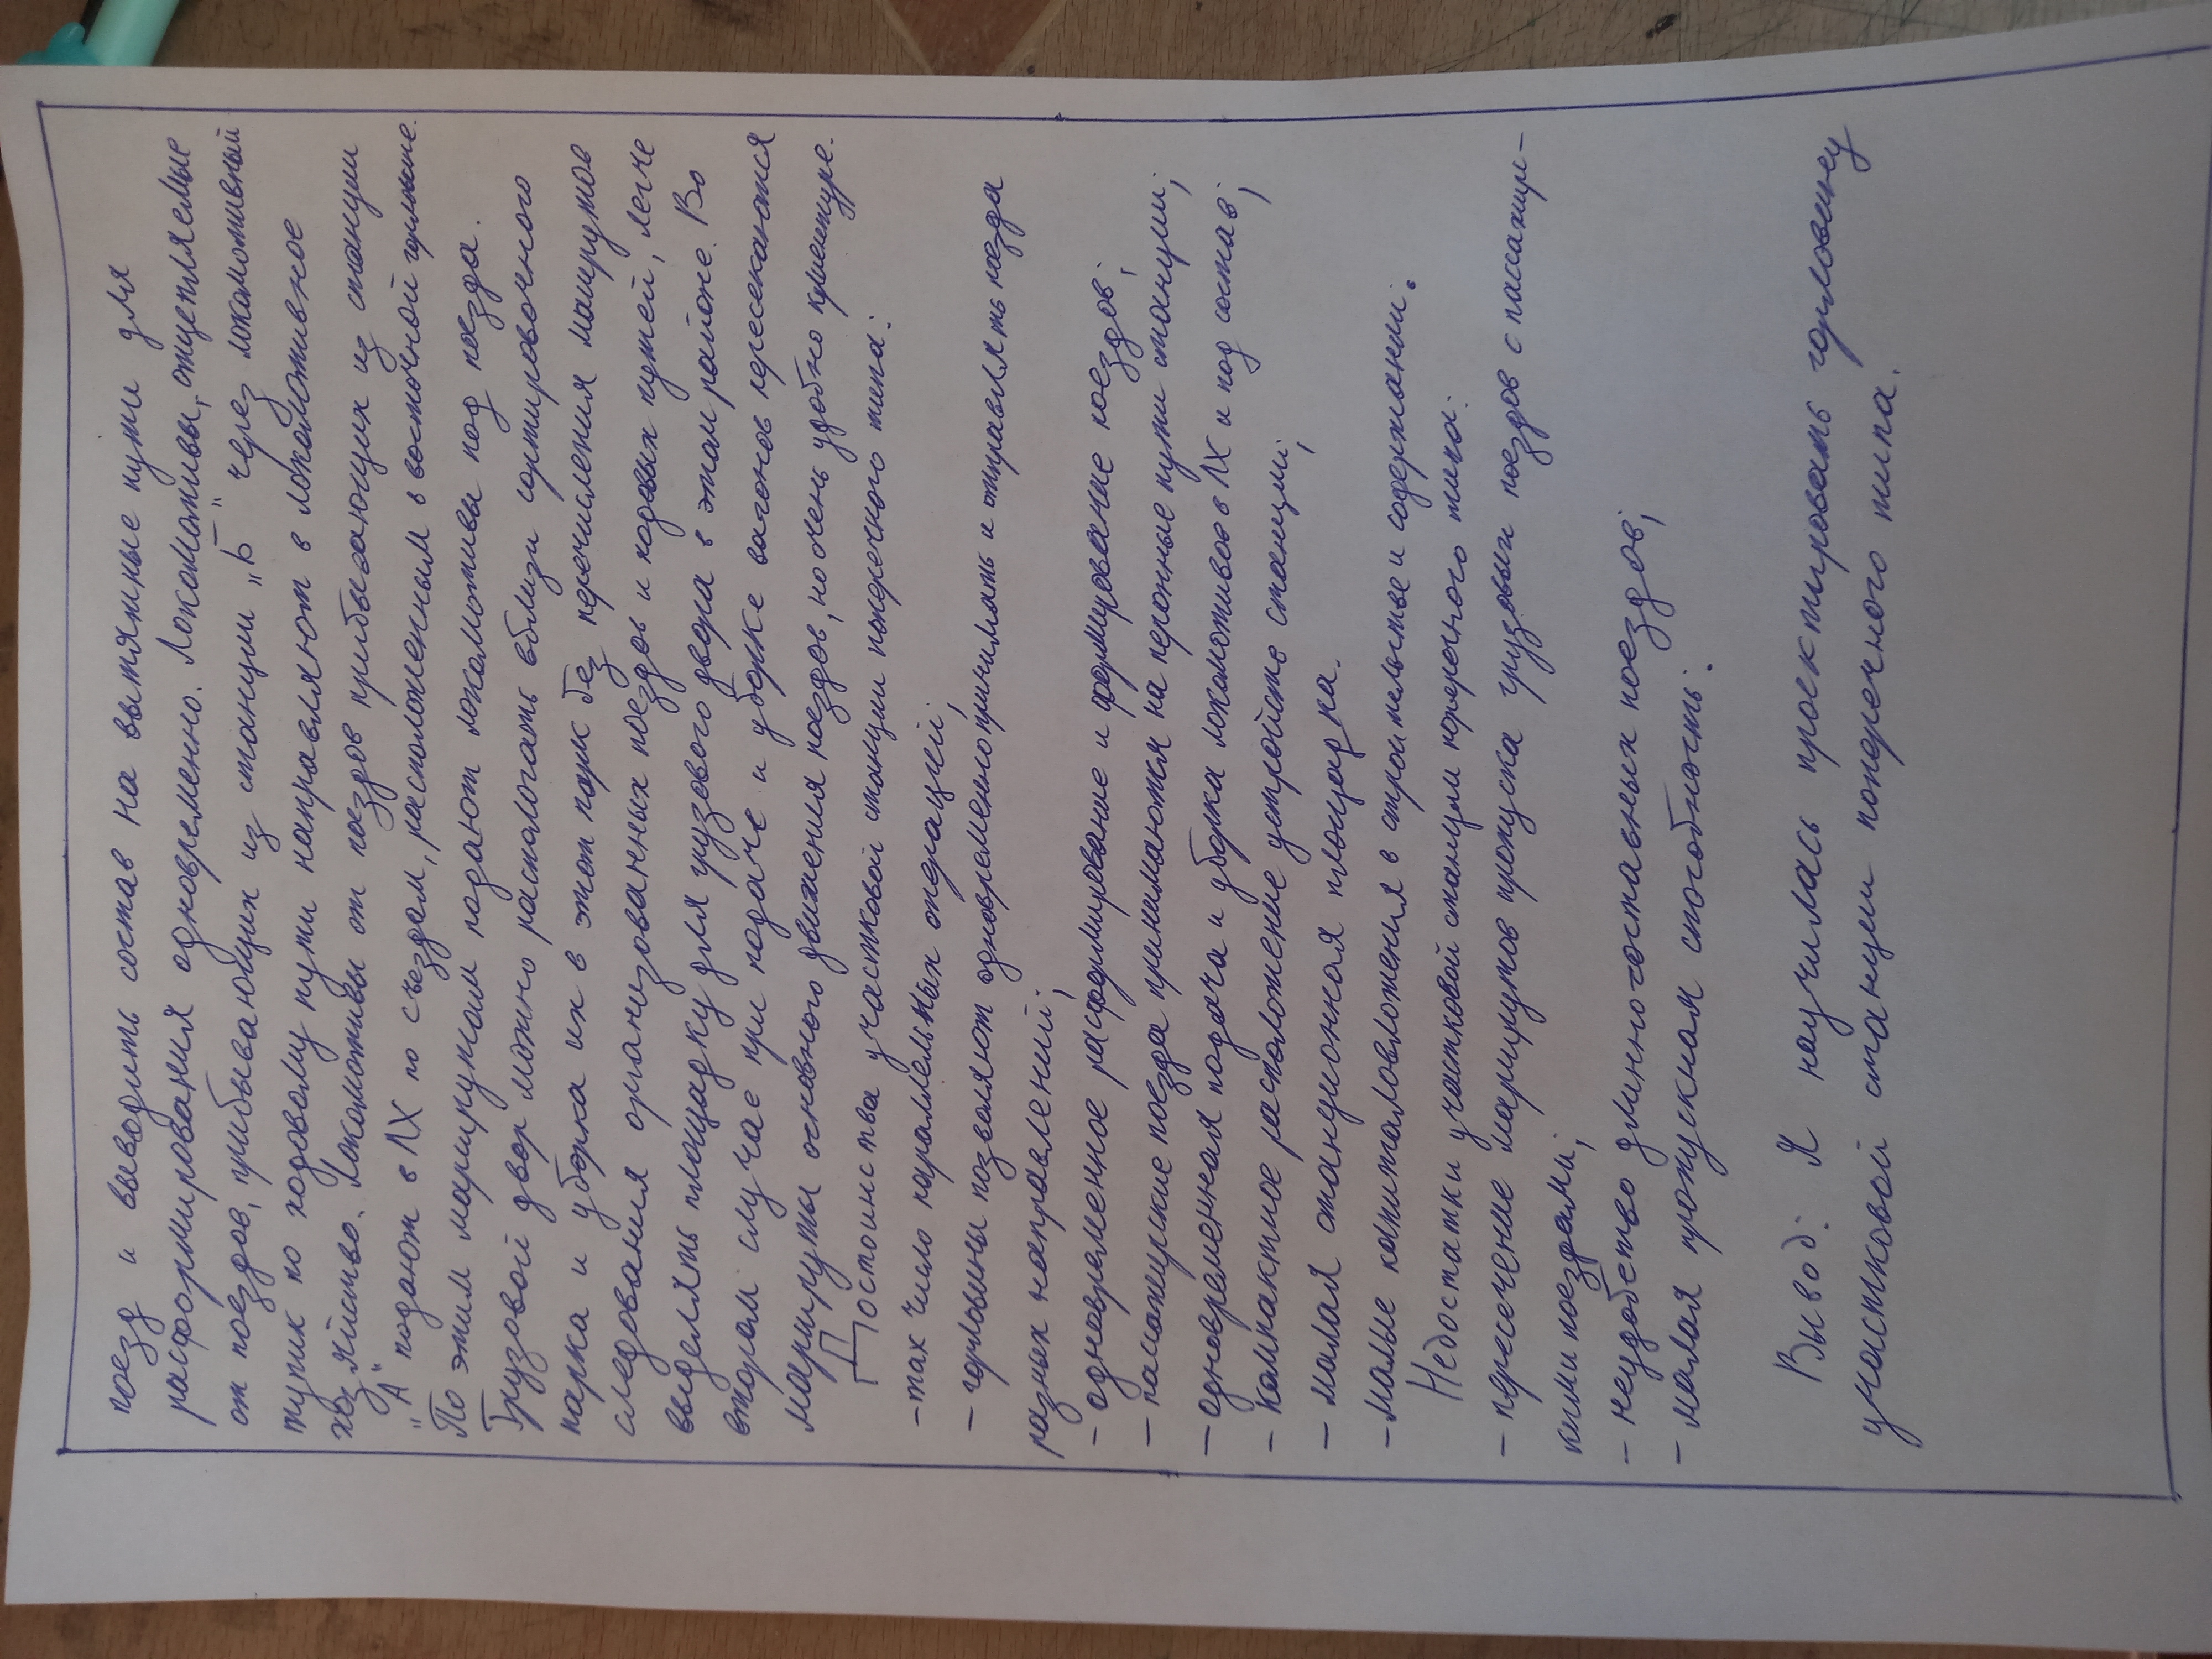 поезд и выводить состав на вытяжные пути для
расформирования одновременно. Локомотивы, отцепляемые
от поездов, прибывающих из станции „Б" через локомотивный
тупик по ходовому пути направляют в локомотивное
хозяйство. Локомотивы от поездов прибывающих из станции
„А" подают в ЛХ по съездам, расположенным в восточной горловине.
По этим маршрутам подают локомотивы под поезда.
Грузовой двор можно располагать вблизи сортировочного
парка и уборка их в этот парк без перечисления маршрутов
следования организованных поездов и ходовых путей, легче
выделять площадку для грузового двора в этом районе. Во
втором случае при подаче и уборке вагонов пересекаются
маршруты основного движения поездов, но очень удобно клиентуре.
Достоинства участковой станции поперечного типа:
- max число параллельных операций;
- горловины позволяют одновременно принимать и отправлять поезда
разных направлений;
- одновременное расформирование и формирование поездов;
- пассажирские поезда принимаются на перонные пути станции;
- одновременная подача и уборка локомотивов в ЛХ и под состав;
- компактное расположение устройств станции;
- малая станционная площадка.
- малые капиталовложения в строительстве и содержании.
Недостатки участковой станции поперечного типа:
- пересечение маршрутов пропуска грузовых поездов с пассажир-
кими поездами;
- неудобство длинносоставных поездов;
- малая пропускная способность.
Вывод: Я научилась проектировать горловину
участковой станции поперечного типа.